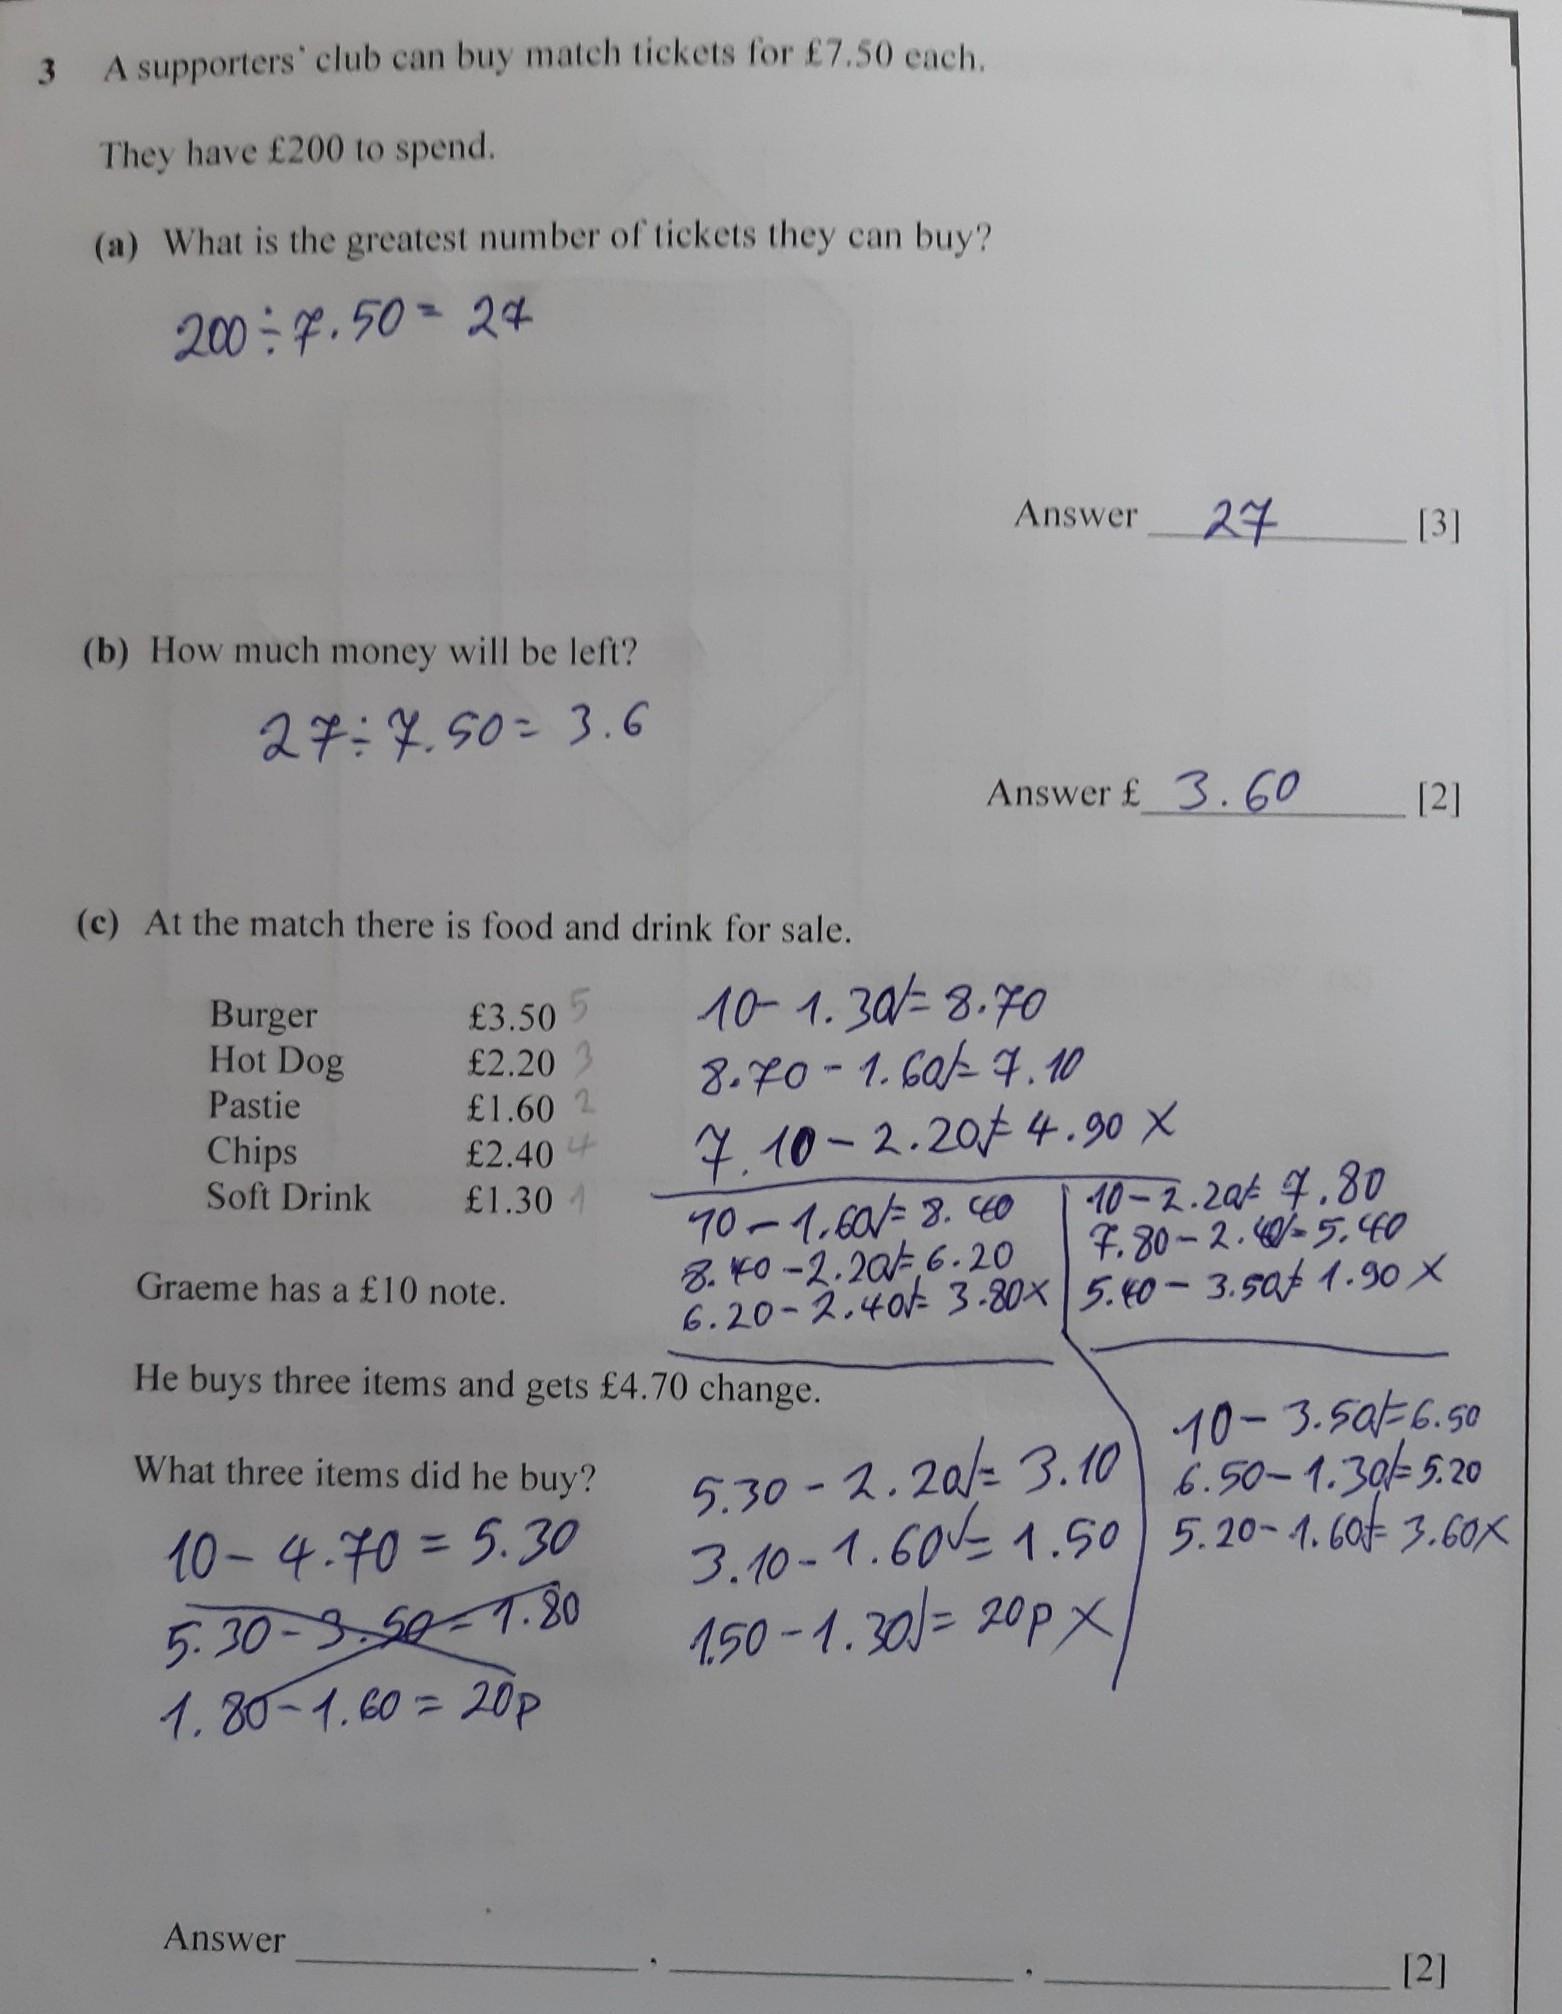 3 A supporters' club can buy match tickets for £7.50 each.
They have £200 to spend.
(a) What is the greatest number of tickets they can buy?
200 ÷ 7.50 = 27
Answer 27 [3]
(b) How much money will be left?
27 ÷ 7.50 = 3.6
Answer £ 3.60 [2]
(c) At the match there is food and drink for sale.
Burger £3.50 5
Hot Dog £2.20 3
Pastie £1.60 2
Chips £2.40 4
Soft Drink £1.30 1
10 - 1.30√= 8.70
8.70 - 1.60√= 7.10
7.10 - 2.20√= 4.90 X
10 - 1.60√= 8.40
8.40 - 2.20√= 6.20
6.20 - 2.40√= 3.80 X
10 - 2.20√= 7.80
7.80 - 2.40√= 5.40
5.40 - 3.50√= 1.90 X
Graeme has a £10 note.
He buys three items and gets £4.70 change.
What three items did he buy?
10 - 4.70 = 5.30
5.30 - 3.50 = 1.80
1.80 - 1.60 = 20p
5.30 - 2.20√= 3.10
3.10 - 1.60√= 1.50
1.50 - 1.30√= 20p X
10 - 3.50√= 6.50
6.50 - 1.30√= 5.20
5.20 - 1.60√= 3.60 X
Answer , , [2]